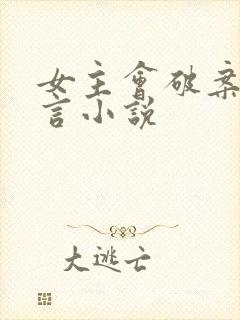 女主會破案
言小說
大逃亡